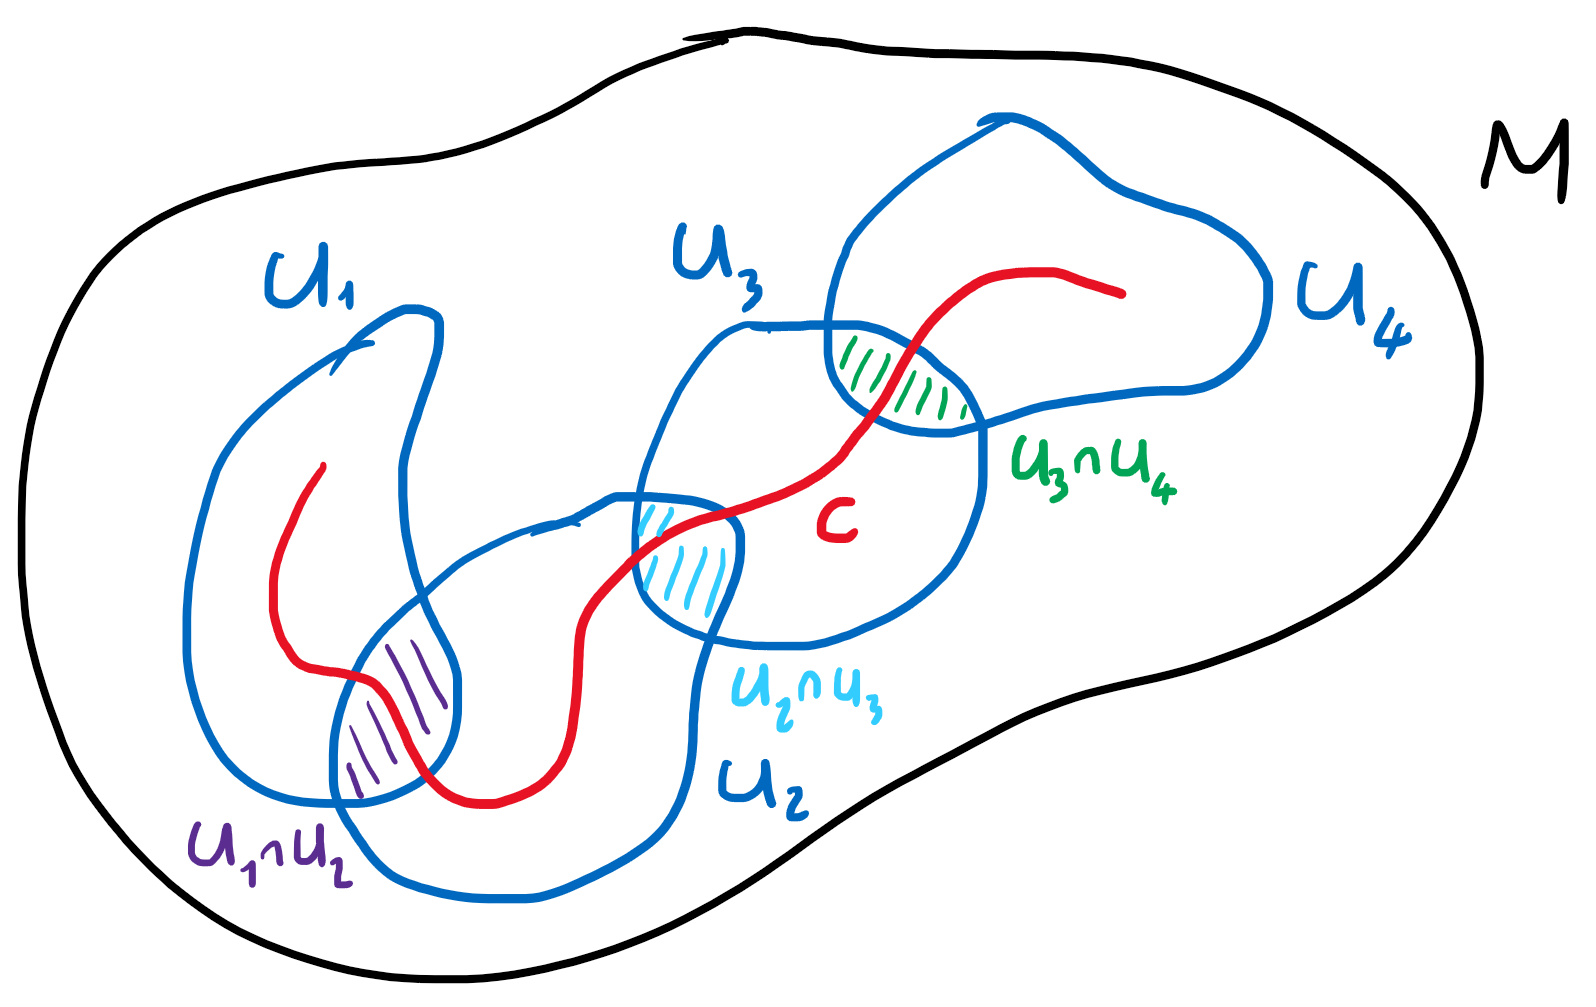 M
U₃
U₁
U₄
U₃∩U₄
C
U₂∩U₃
U₂
U₁∩U₂